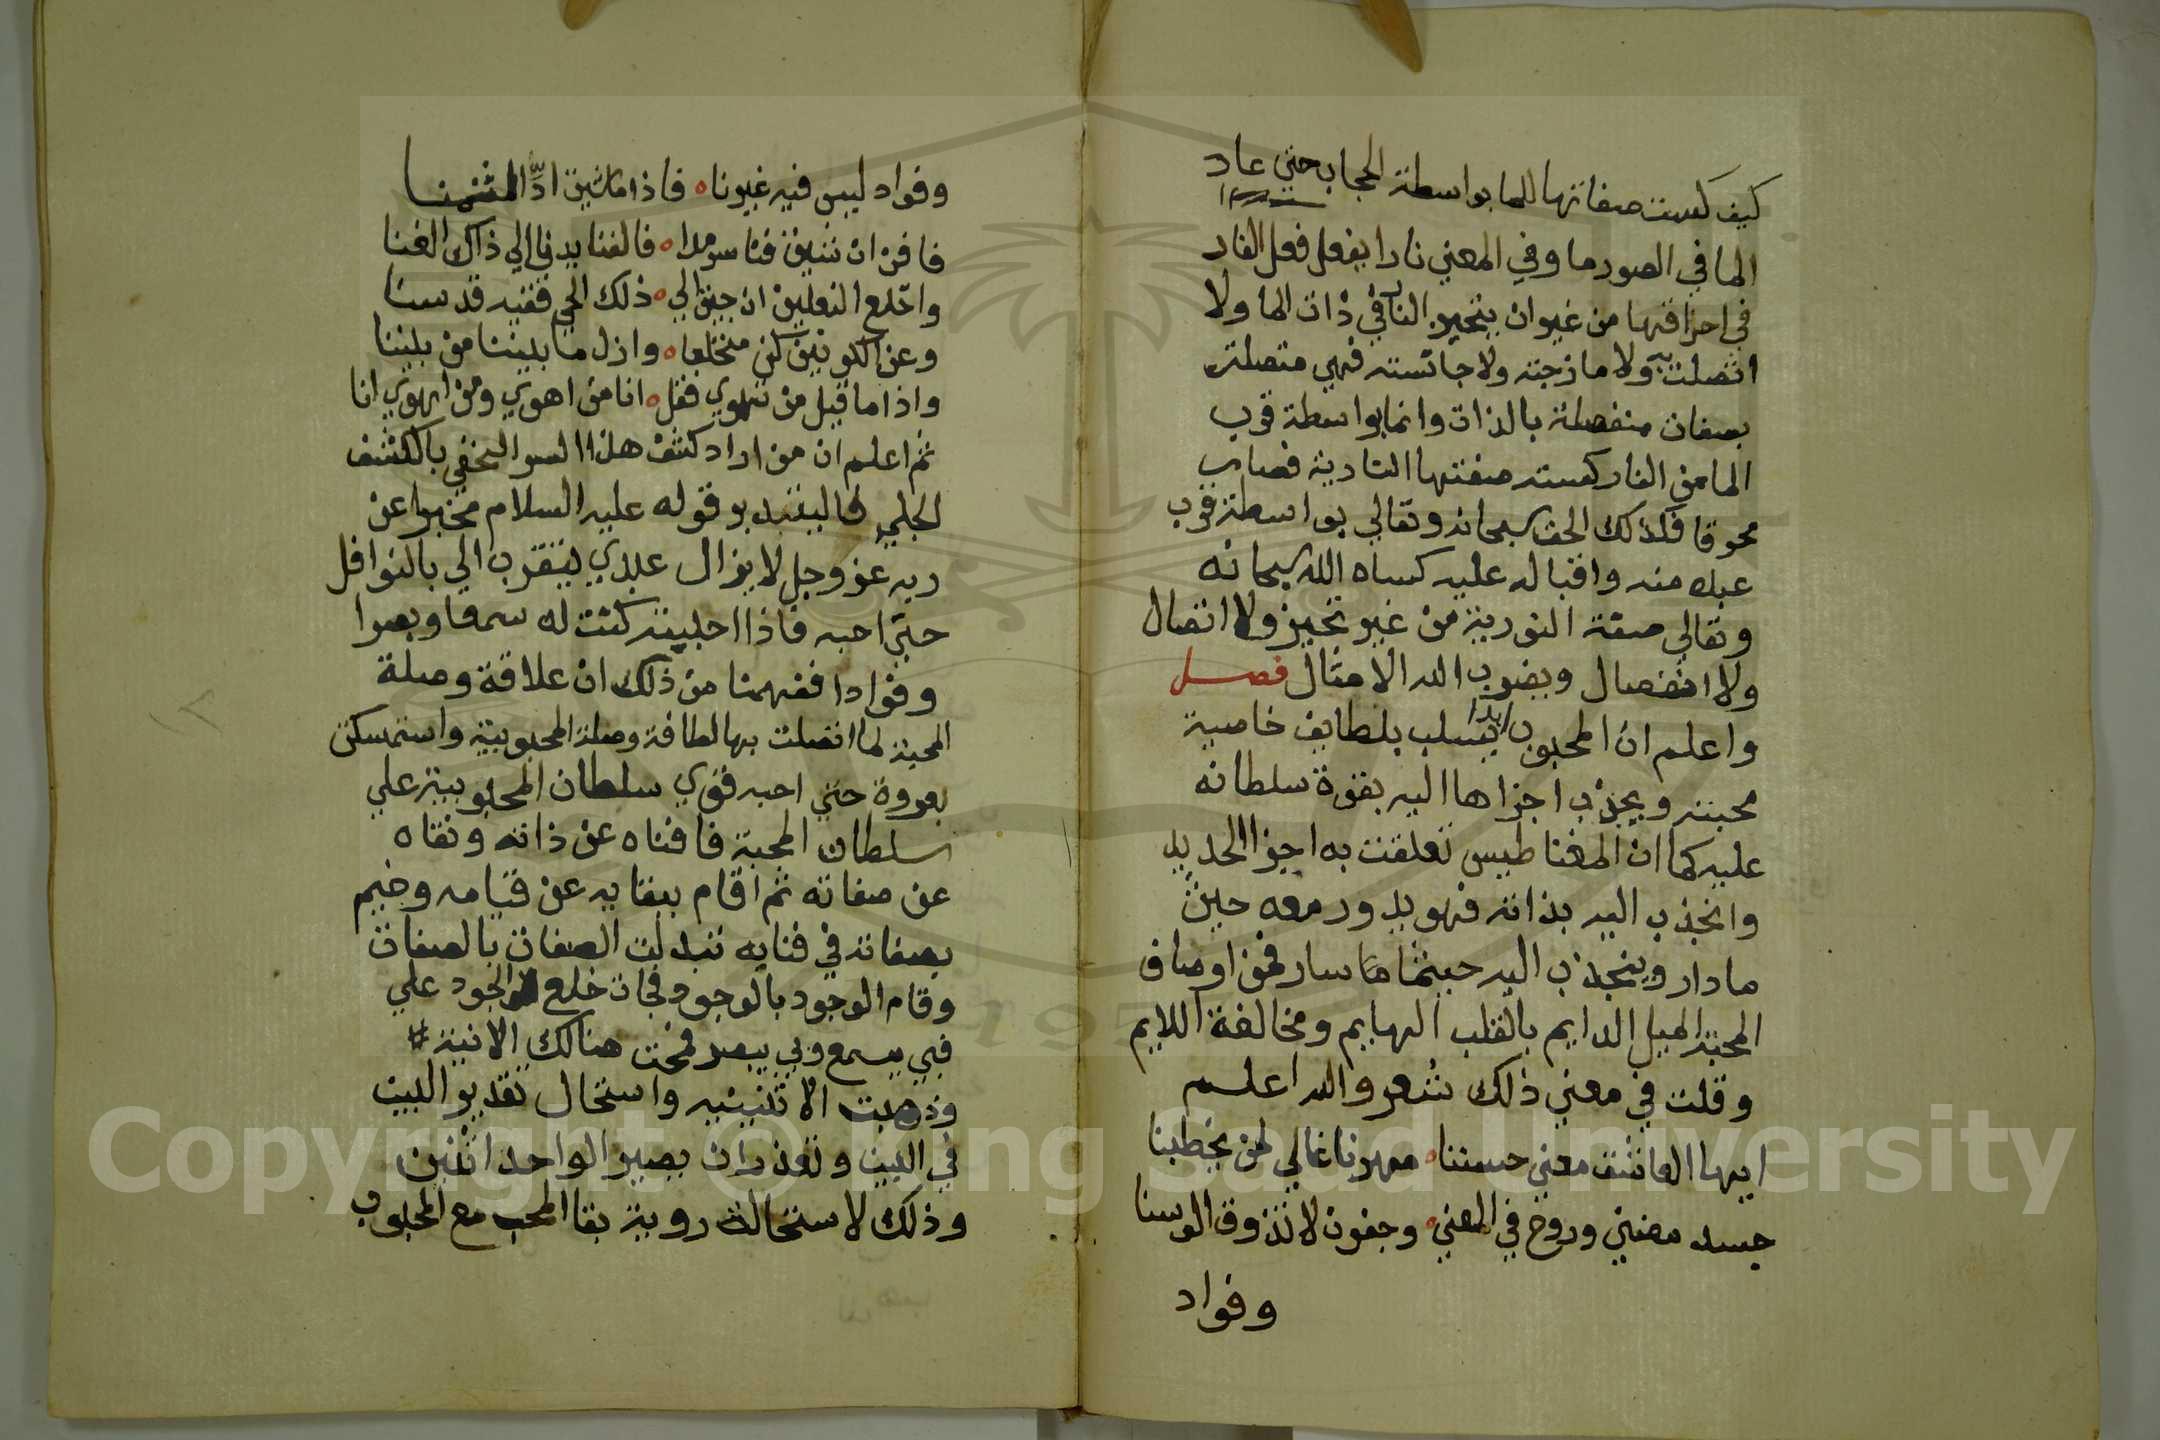 كيف كست صفاتها للما بواسطة الحجاب حتي عاد
الما في الصور ما وفي المعني نارا يفعل فعل النار
في احراقها من غير ان يتحيز النار في ذات الما ولا
اتصلت به ولا مازجته ولا جانسته فهي متصلة
بصفات منفصلة بالذات وانما بواسطة قرب
الما من النار كسته صفتها النارية فصار
محرقا فكذلك الحق سبحانه وتعالي بواسطة قرب
عبده منه واقباله عليه كساه الله سبحانه
وتعالي صفة النورية من غير تحيز ولا اتصال
ولا انفصال ويضرب الله الامثال فصل
واعلم ان المحبوب ابدا يسلب بلطايف خاصية
محبته ويجذب اجزاها اليه بقوة سلطانه
عليه كما ان المغناطيس تعلقت به اجزا الحديد
وانجذب اليه بذاته فهو يدور معه حيث
ما دار وينجذب اليه حيثما ما سار فمن اوصاف
المحبة الميل الدايم بالقلب الهايم ومخالفة اللايم
وقلت في معني ذلك شعر والله اعلم
ايها العاشق معني حسننا ه مهرنا غالي لمن يخطبنا
جسد مضني وروح في العني ه وجفون لا تذوق الوسنا
وفواد
وفواد ليس فيه غيرنا ه فاذا ما شيت ادّ الثمنا
فافن ان شيت فنا سرمدا ه فالفنا يدني الي ذاك الفنا
واخلع النعلين ان جيت الي ه ذلك الحي ففيه قدسنا
وعن الكونين كن منخلعا ه وازل ما بيننا من بيننا
واذا ما قيل من تهوي فقل ه انا من اهوي ومن اهوي انا
ثم اعلم ان من اراد كشف هذا السر الخفي بالكشف
الجلي فاليتدبر قوله عليه السلام مخبرا عن
ربه عز وجل لا يزال عبدي يتقرب الي بالنوافل
حتي احبه فاذا احببته كنت له سمعا وبصرا
وفوادا ففهمنا من ذلك ان علاقة وصلة
المحبة لما اتصلت بها لطافة وصلة المحبوبية واستمسكت
بعروة حتي احبه قوي سلطان المحبوبية علي
سلطان المحبة فافناه عن ذاته ونقاه
عن صفاته ثم اقام ببقايه عن قيامه وخيم
بصفاته في فنايه تبدلت الصفات بالصفات
وقام الوجود بالوجود فجات خلع الجود علي
فبي يسمع وبي يبصر فمحت هنالك الانية #
وذهبت الاثنينيه واستحال تقدير البين
في البين وتعذر ان يصير الواحد اثنين
وذلك لاستحالة روية بقا المحب مع المحبوب
Copyright © King Saud University